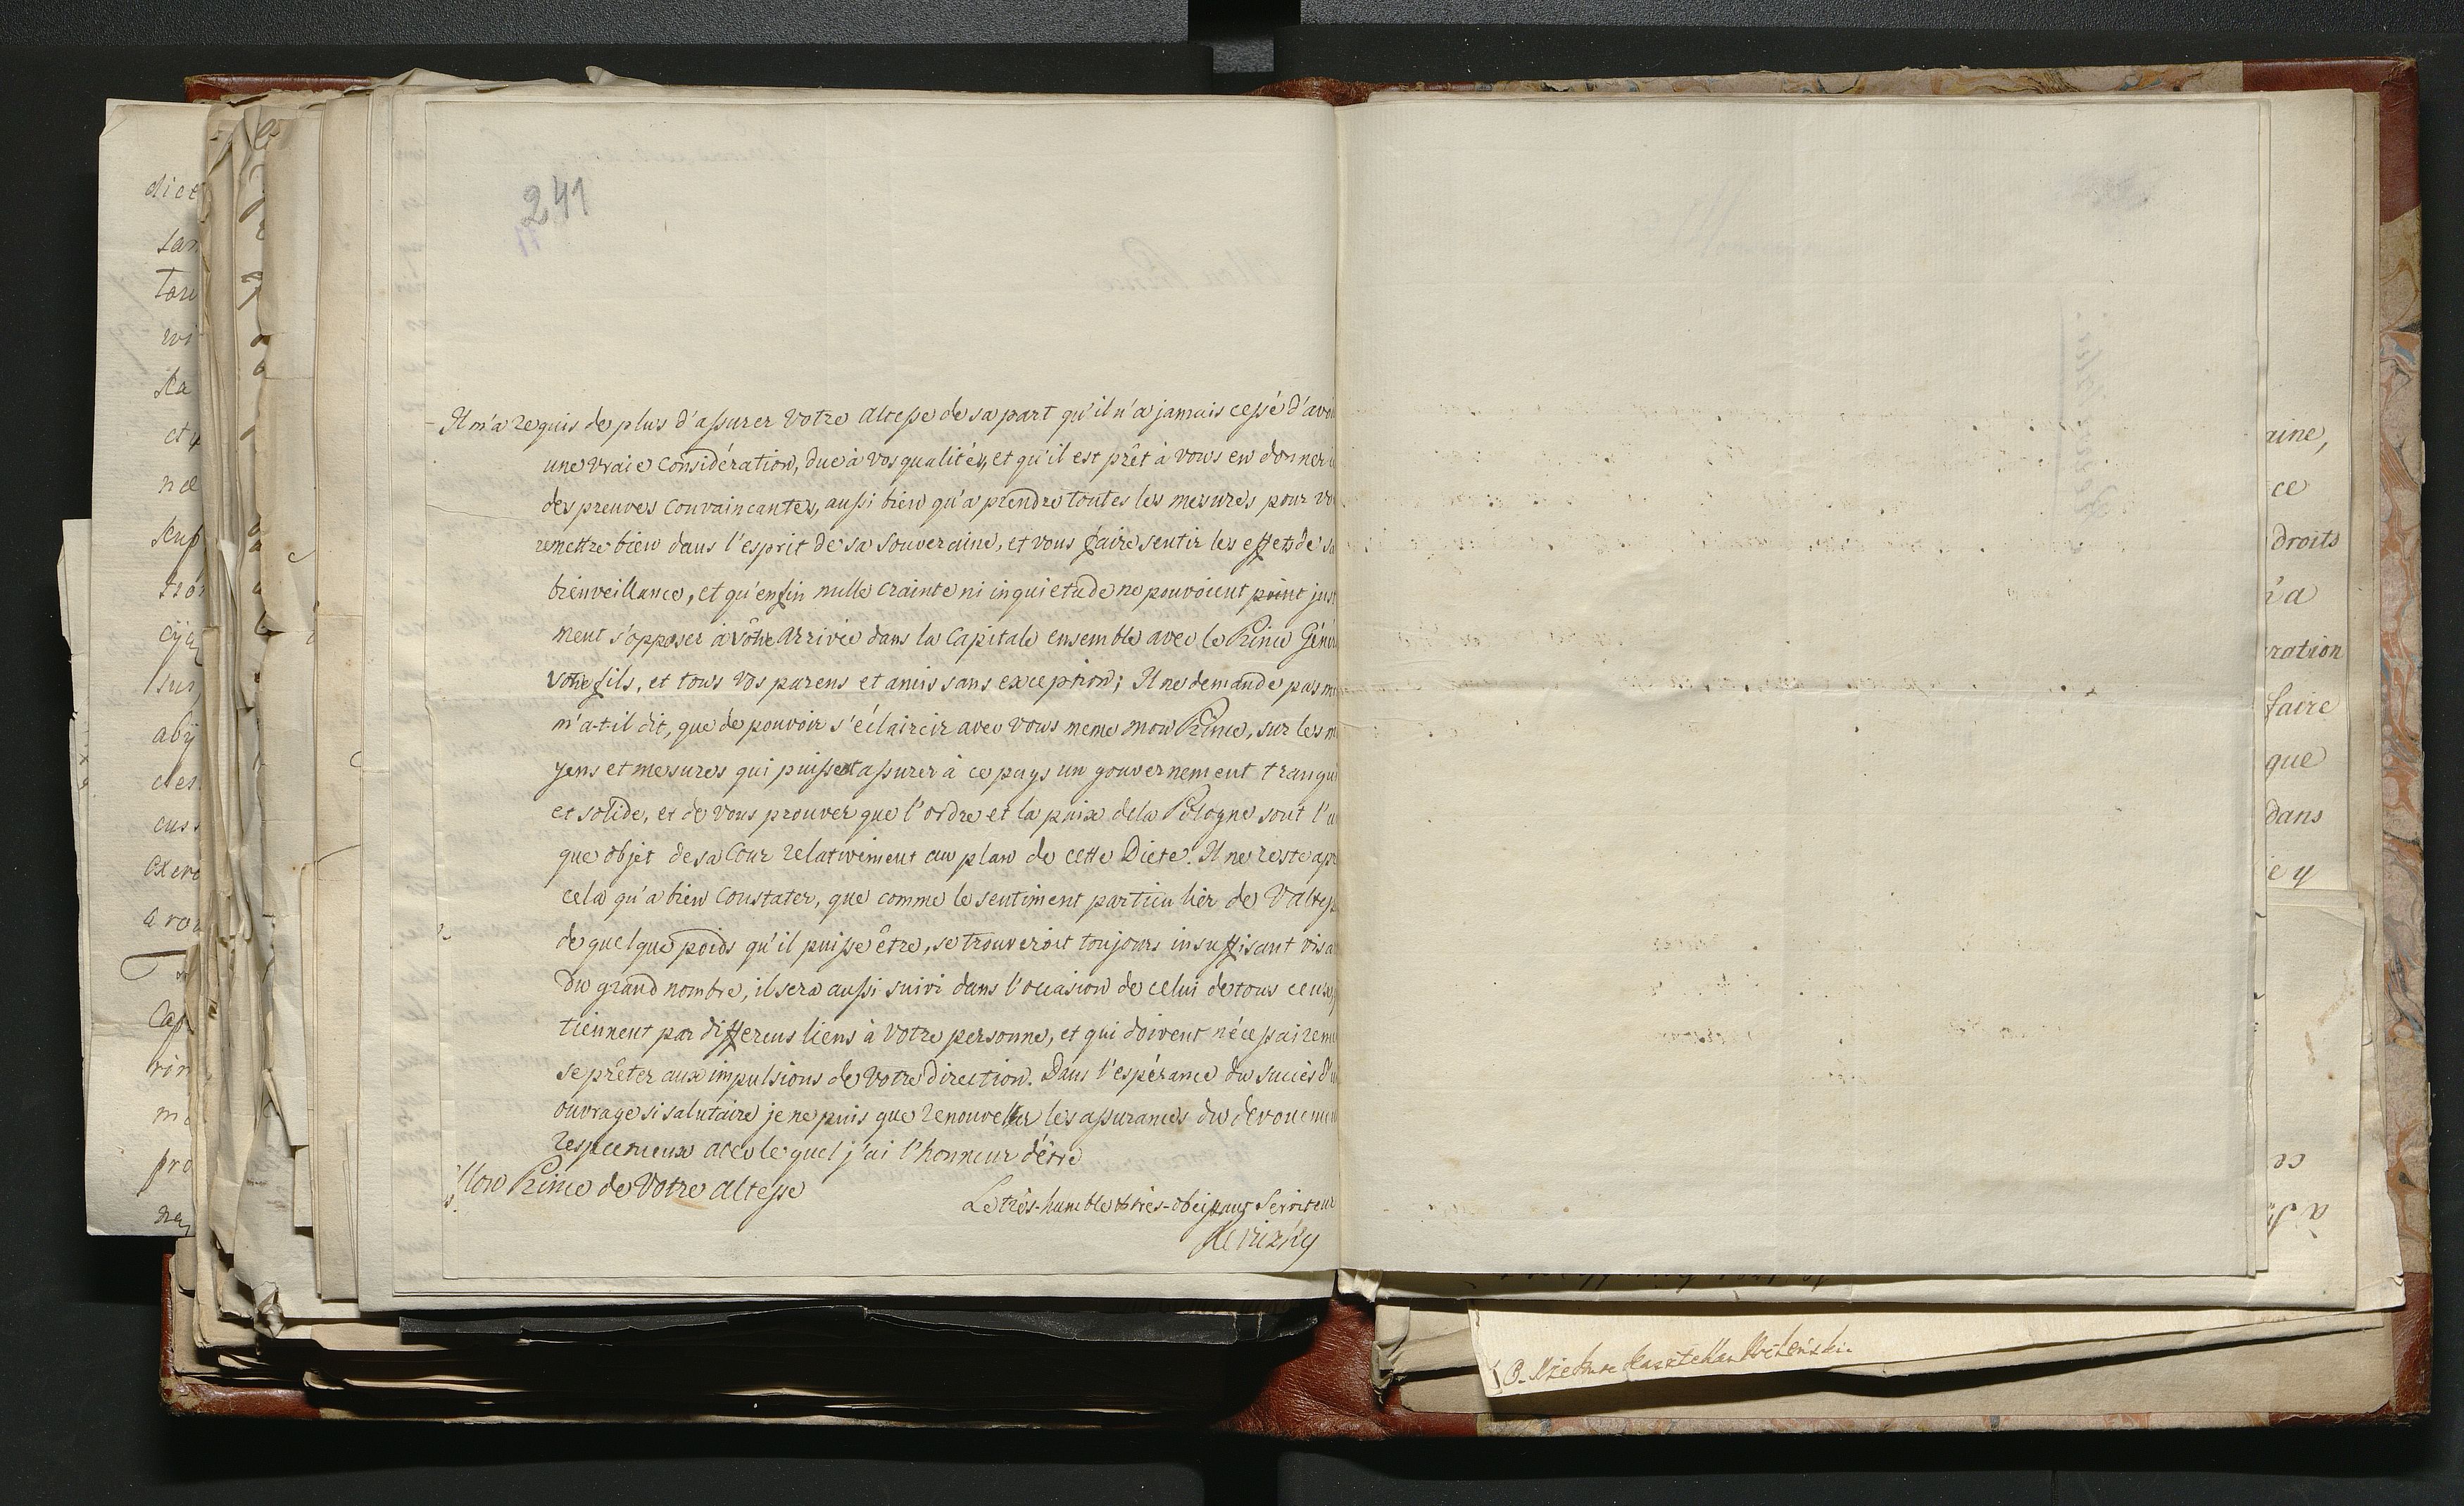 241
11
Il m'a requis de plus d'assurer Votre Altesse de sa part qu'il n'a jamais cessé d'avoi
une vraie Considération, due à vos qualités, et qu'il est prêt à vous en donner
des preuves Convaincantes, aussi bien qu'a prendre toutes les mesures pour vo
remettre bien dans l'esprit de sa Souveraine, et vous faire sentir les effets de sa
bienveillance, et qu'enfin nulle Crainte ni inquietude ne pouvoient point just
ment s'opposer à vôtre Arrivée dans la Capitale ensemble avec le Prince Géné
Votre fils, et tous Vos parens et amis sans exception; Il ne demande pas m
m'a-t-il dit, que de pouvoir s'éclaircir avec vous meme mon Prince, sur les m
yens et mesures qui puissent assurer à ce pays un gouvernement tranqui
et solide, et de vous prouver que l'ordre et la paix de la Pologne sont l'u
que objet de sa Cour relativement au plan de cette Diete. Il ne reste apr
cela qu'a bien Constater, que comme le sentiment particulier de V'altess
de quelque poids qu'il puisse être, se trouveroit toujours insuffisant vis a
du grand nombre, il sera aussi suivi dans l'occasion de celui de tous ceux
tiennent par differens liens à Votre personne, et qui doivent nécessairem
se prêter aux impulsions de Votre direction. Dans l'espérance du succès d'u
ouvrage si salutaire je ne puis que renouveller les assurances du devouemen
respectueux avec le quel j'ai l'honneur d'être
Mon Prince de Votre Altesse
Le très-humble et très-obeissant Serviteur
dice
tar
wi
sta
et
aby
exero
Cap
rin
pro
aine,
ce
droits
ration
faire
que
dans